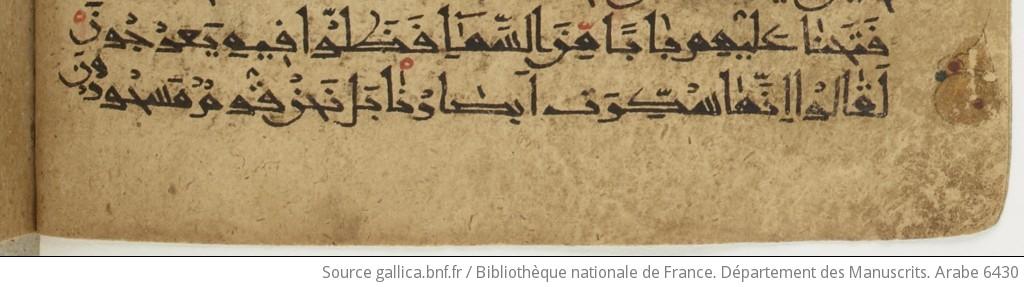 فَتَحْنَا عَلَيْهِم بَابًا مِّنَ السَّمَا فَظَلُّوا فِيهِ يَعْرُجُونَ
لَقَالُوا إِنَّمَا سُكِّرَت أَبْصَارُنَا بَل نَحْنُ قَوْمٌ مَّسْحُورُونَ
Source gallica.bnf.fr / Bibliothèque nationale de France. Département des Manuscrits. Arabe 6430